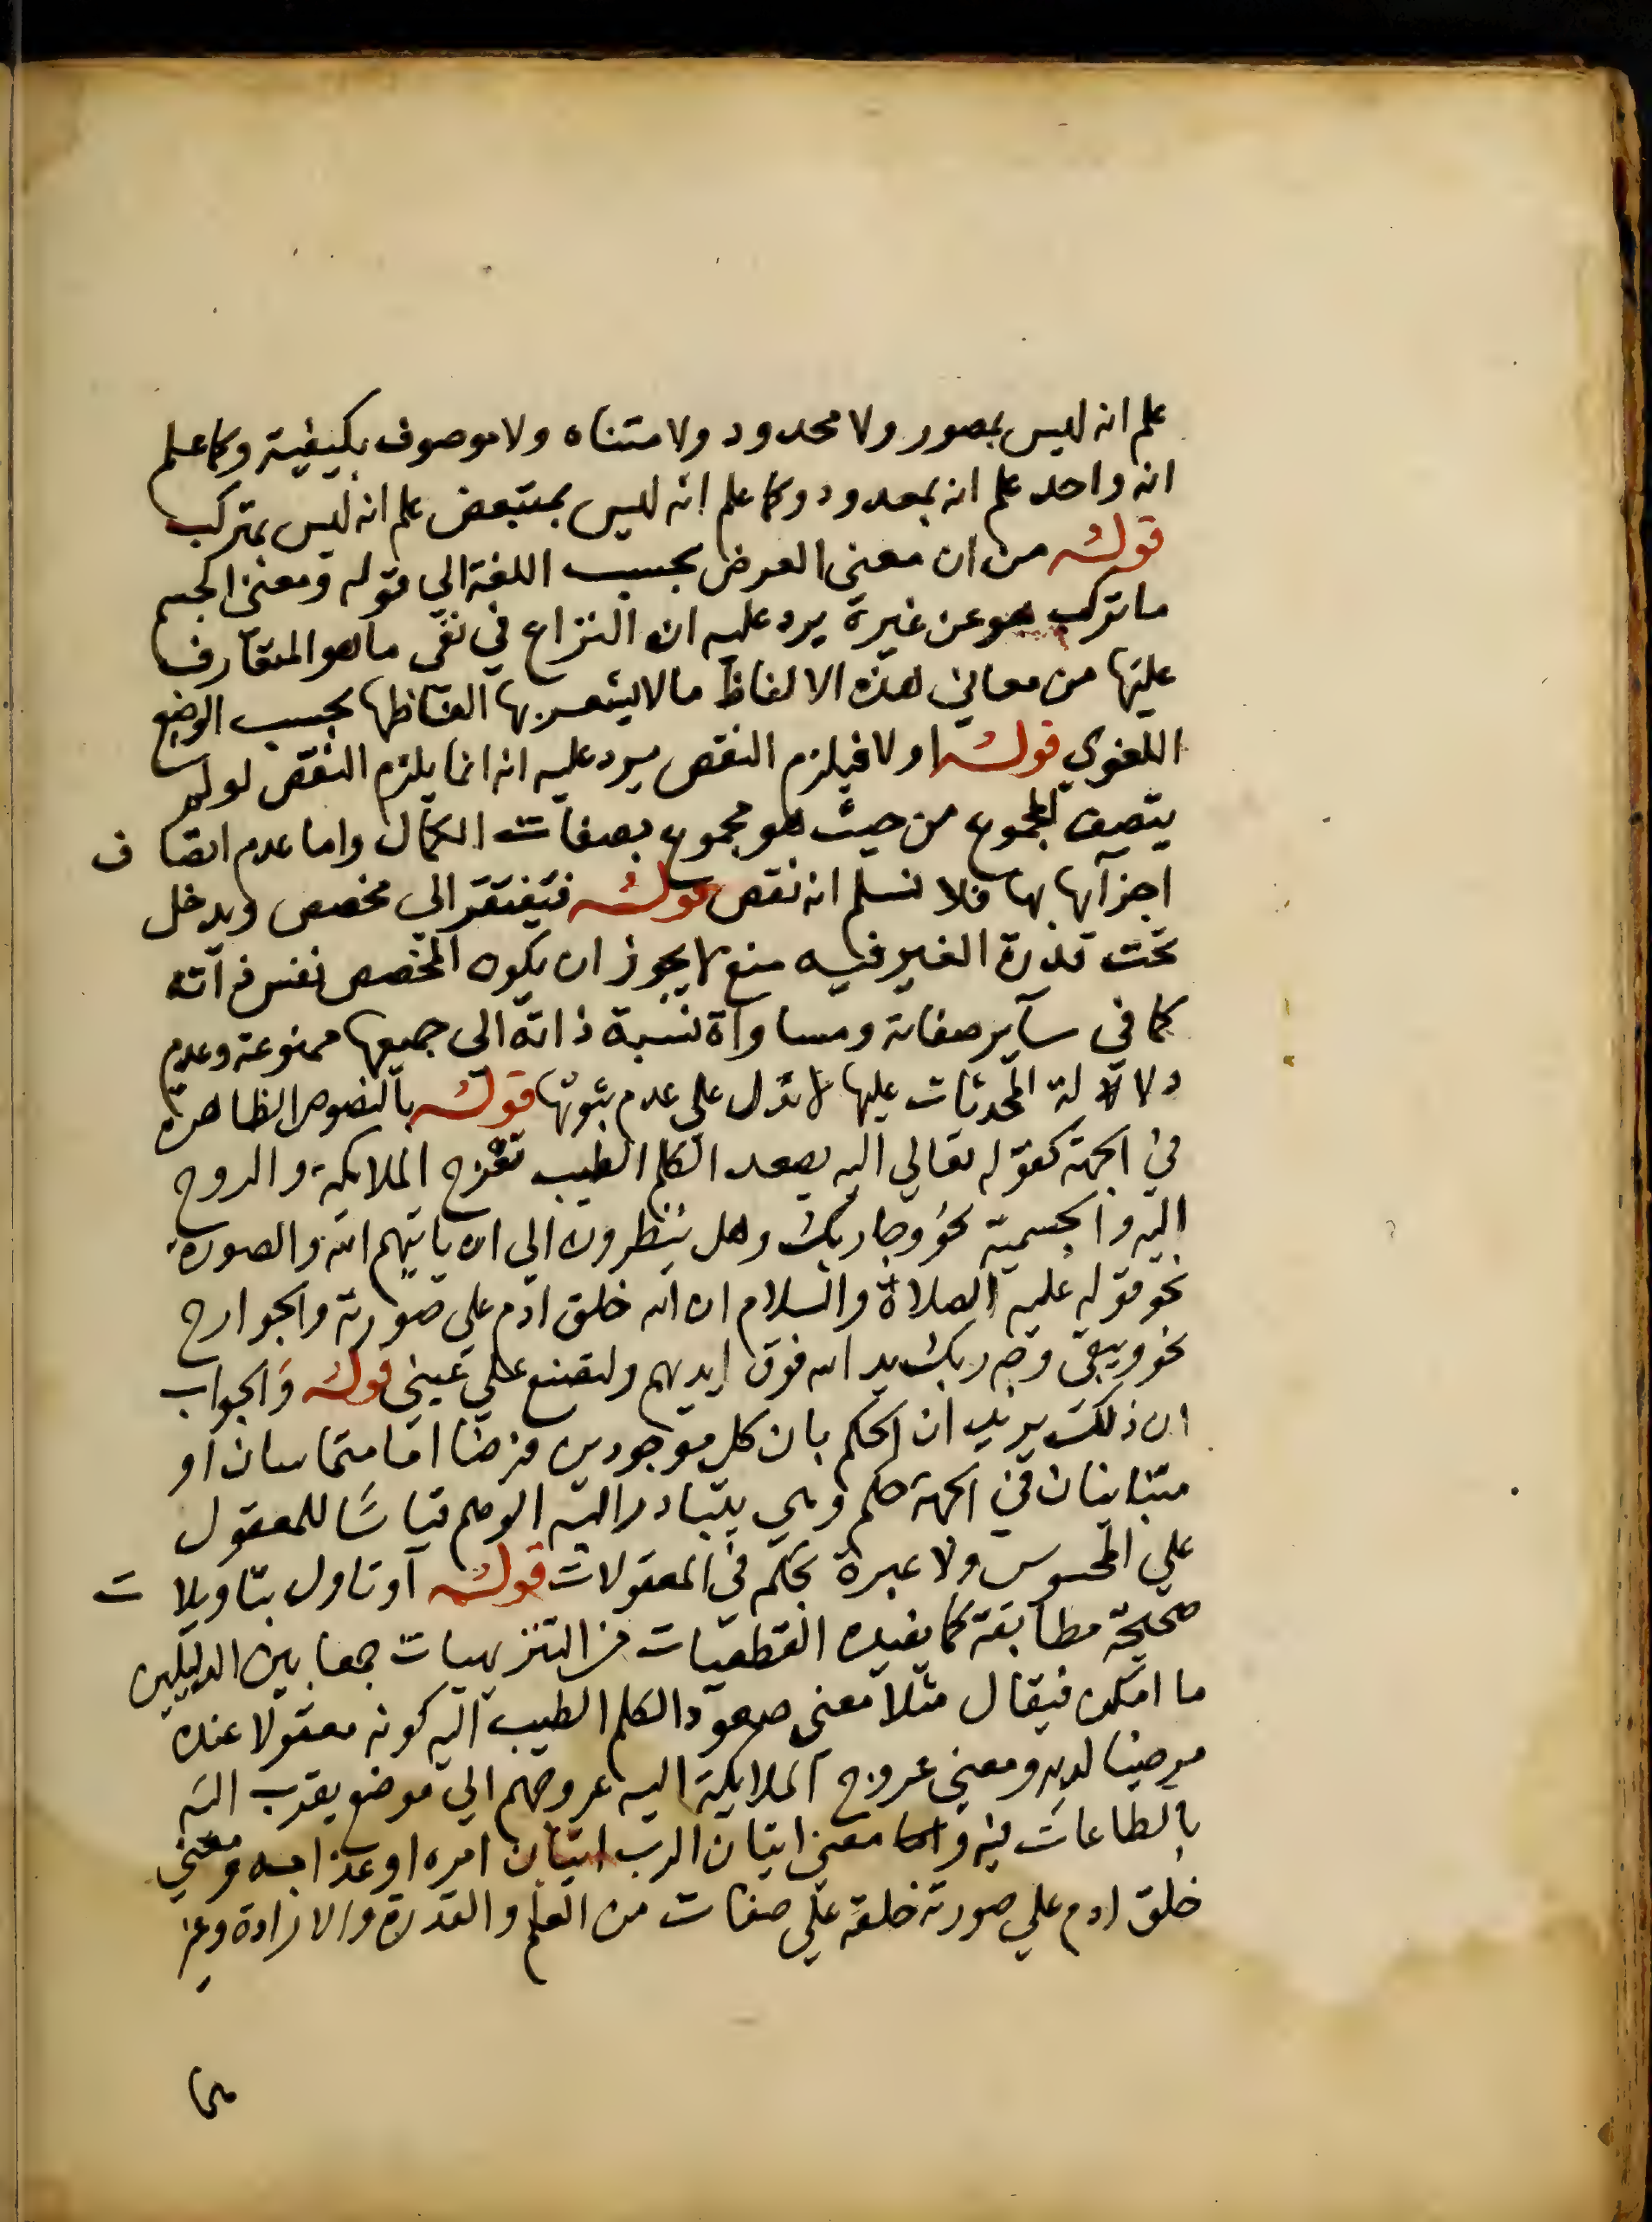 علم انه ليس بمصور ولا محدود ولا متناه ولا موصوف بكيفية وكما علم
انه واحد علم انه بمعدود وكما علم انه ليس بمتبعض علم انه ليس بمتركب
قوله من ان معني العرض بحسب اللغة الي قوله ومعنى الجسم
ما تركب هو عن غيره يرد عليه ان النزاع في نفي ما هو المتعارف
عليها من معاني هذه الالفاظ ما لا يشعر بها الفاظها بحسب الوضع
اللغوي قوله اولا فيلزم النقص يرد عليه انه انما يلزم النقص لو لم
يتصف المجموع من حيث هو مجموع بصفات الكمال واما عدم اتصاف
اجزآيها بها فلا نسلم انه نقص قوله فتفتقر الي مخصص ويدخل
تحت قدرة الغير فيه منع لا يجوز ان يكون المخصص نفس ذاته
كما في سآير صفاته ومساواة نسبة ذاته الى جميعها ممنوعة وعدم
دلالة المحدثات عليها لا تدل على عدم ثبوتها قوله بالنصوص الظاهرة
في الجهة كقوله تعالي اليه يصعد الكلم الطيب تعرج الملايكة والروح
اليه والجسمية نحو وجا ربك وهل ينظرون الي ان ياتيهم الله والصورة
نحو قوله عليه الصلاة والسلام ان الله خلق ادم على صورته والجوارح
نحو ويبقى وجه ربك يد الله فوق ايديهم ولتصنع علي عيني قوله والجواب
ان ذلك يريد ان الحكم بان كل موجودين فرضا اما متماسان او
متباينان في الجهة حكم وهمي يتبادر اليه الوهم قياسا للمعقول
علي المحسوس ولا عبرة بحكمه في المعقولات قوله او تاول بتاويلات
صحيحة مطابقة كما يفيده القطعيات من التنزيهيات جمعا بين الدليلين
ما امكن فيقال مثلا معنى صعود الكلم الطيب اليه كونه معقولا عنده
مرضيا لديه ومعنى عروج الملايكة اليه عروجهم الي موضع يقرب اليه
بالطاعات فيه واما معنى اتيان الرب اتيان امره او عذابه ومعني
خلق ادم علي صورته خلقه علي صفات من العلم والقدرة والارادة وغير